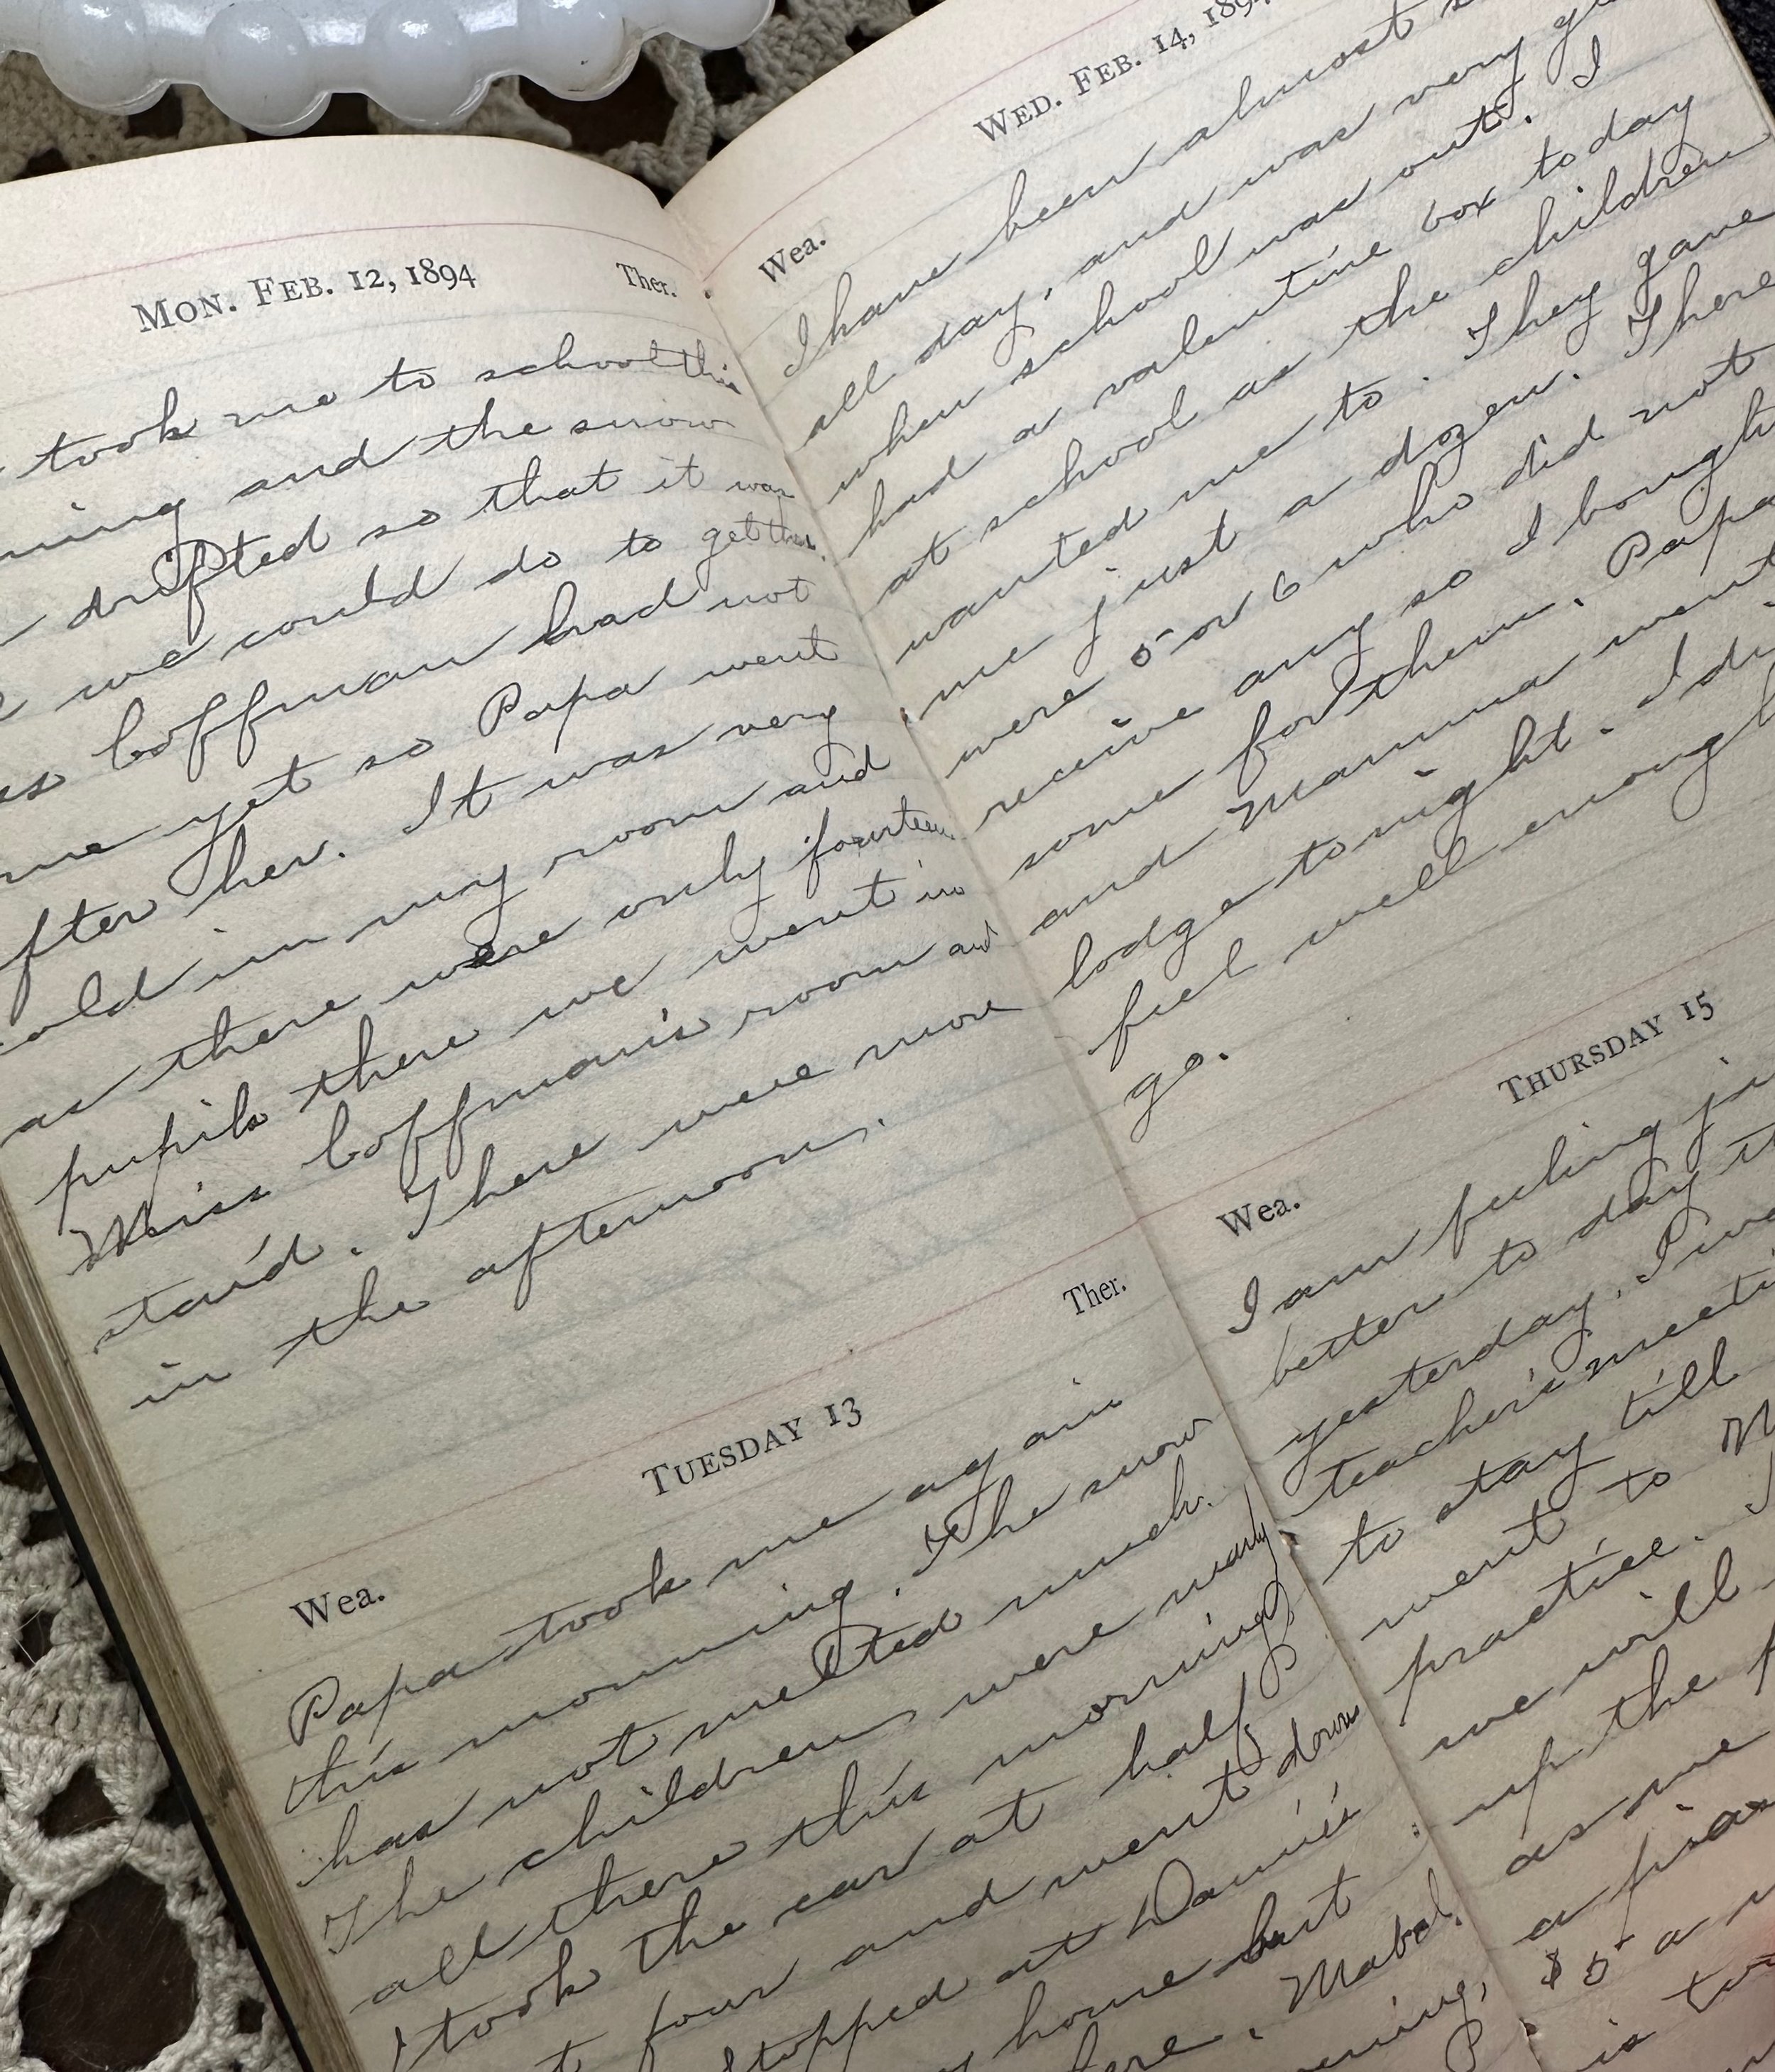 MON. FEB. 12, 1894 Ther.
took me to school this
and the snow
drifted so that it was
we could do to get there.
Coffman had not
yet so Papa went
after her. It was very
cold in my room and
as there were only fourteen
pupils there we went in
Miss Coffman's room and
staid. There were more
in the afternoon.
TUESDAY 13 Ther.
Wea.
Papa took me again
this morning. The snow
has not melted much.
The children were nearly
all there this morning
I took the car at half
four and went down
stopped at
house but
Mabel.
WED. FEB. 14, 1894
Wea.
I have been almost
all day, and was very
when school was out. I
had a valentine box today
at school as the children
wanted me to. They gave
me just a dozen. There
were 5 or 6 who did not
receive any so I bought
some for them. Papa
and Mamma went
lodge tonight. I
feel well enough
go.
THURSDAY 15
Wea.
I am feeling
better to day
yesterday. I
teacher's
to stay till
went to
practice.
we will
up the
as me
a
$5 a
is